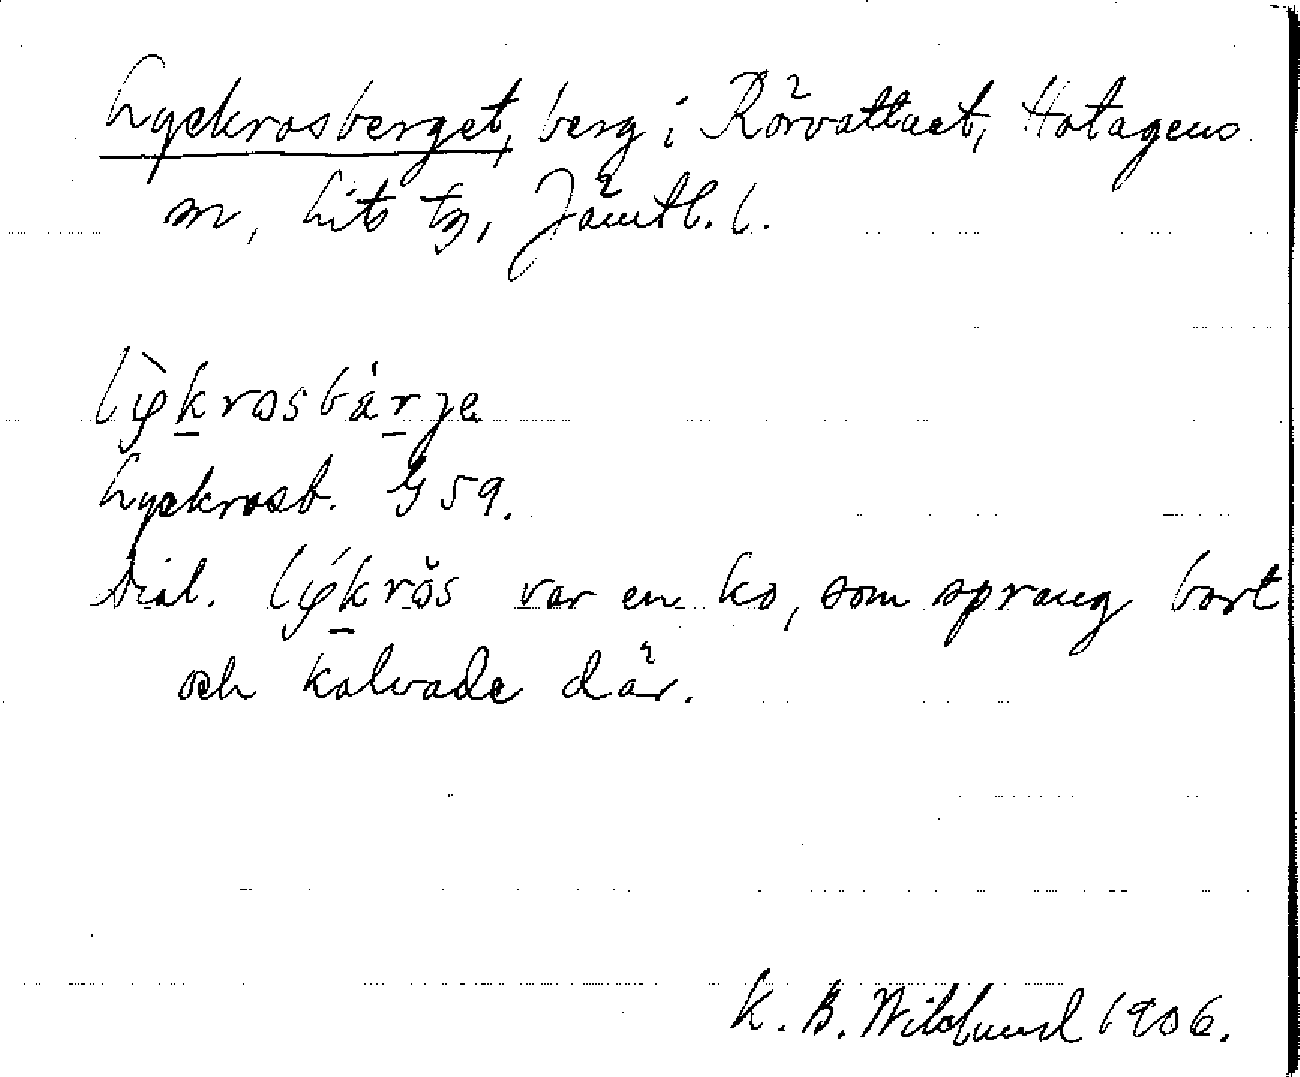 Lyckrosberget, berg i Rörvattnet, Hotagens
sn, Lits tg, Jämtl. l.
lỳkrosbárje
Lyckrosb. G 59.
Dial. lýkrŏs var en ko, som sprang bort
och kalvade där.
K. B. Wiklund 1906.